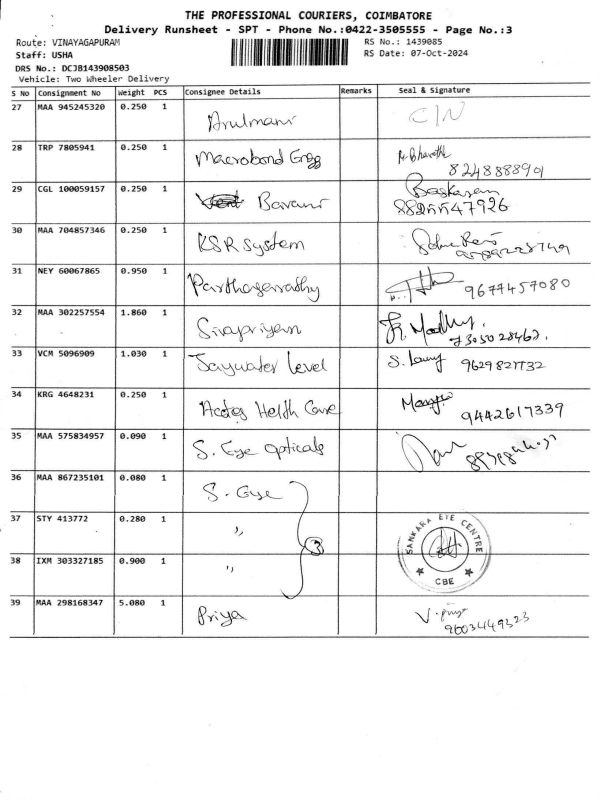 THE PROFESSIONAL COURIERS, COIMBATORE
Delivery Runsheet - SPT - Phone No.:0422-3505555 - Page No.:3
Route: VINAYAGAPURAM RS No.: 1439085
Staff: USHA RS Date: 07-Oct-2024
DRS No.: DCJB143908503
Vehicle: Two Wheeler Delivery
S No Consignment No Weight PCS Consignee Details Remarks Seal & Signature
27 MAA 945245320 0.250 1 Arulmani C/N
28 TRP 7805941 0.250 1 Macrobond Engg Bharathi
8248888901
29 CGL 100059157 0.250 1 Barani Baskaran
8825547926
30 MAA 704857346 0.250 1 KSR System
31 NEY 60067865 0.950 1 Parthasarathy 9677457080
32 MAA 302257554 1.860 1 Sivapriyan
7305028462.
33 VCM 5096909 1.030 1 Jaywater Level S. 9629827732
34 KRG 4648231 0.250 1 Health Care
9442617339
35 MAA 575834957 0.090 1 S. Eye Opticals
36 MAA 867235101 0.080 1 S. Eye
37 STY 413772 0.280 1 ,, 3
38 IXM 303327185 0.900 1 ,,
SANKARA EYE CENTRE
CBE
39 MAA 298168347 5.080 1 Priya V. Priya
9603449323